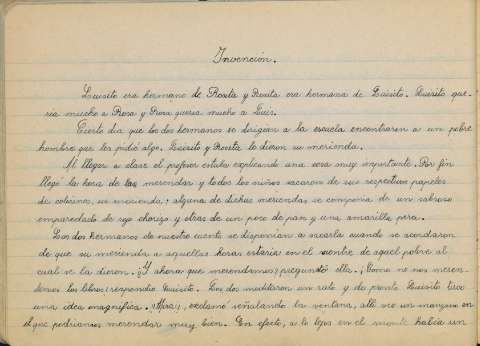 Invención.
Luisito era hermano de Rosita y Rosita era hermana de Luisito. Luisito que-
ría mucho a Rosa y Rosa quería mucho a Luis.
Cierto día que los dos hermanos se dirigían a la escuela encontraron a un pobre
hombre que les pidió algo. Luisito y Rosita le dieron su merienda.
Al llegar a clase el profesor estaba explicando una cosa muy importante. Por fin
llegó la hora de merendar y todos los niños sacaron de sus respectivos papeles
de colorines, su merienda; alguna de dichas meriendas se componía de un sabroso
emparedado de rojo chorizo y otras de un poco de pan y una amarilla pera.
Los dos hermanos de nuestro cuento se disponían a sacarla cuando se acordaron
de que su merienda a aquellas horas estaría en el vientre de aquel pobre al
cual se la dieron. ¿Y ahora que merendamos? preguntó ella. ¡Como no nos meren-
demos los libros! respondió Luisito. Los dos meditaron un rato y de pronto Luisito tuvo
una idea magnífica. ¡Mira!, exclamó señalando la ventana, allí veo un manzano en
el que podríamos merendar muy bien. En efecto, a lo lejos en el monte había un